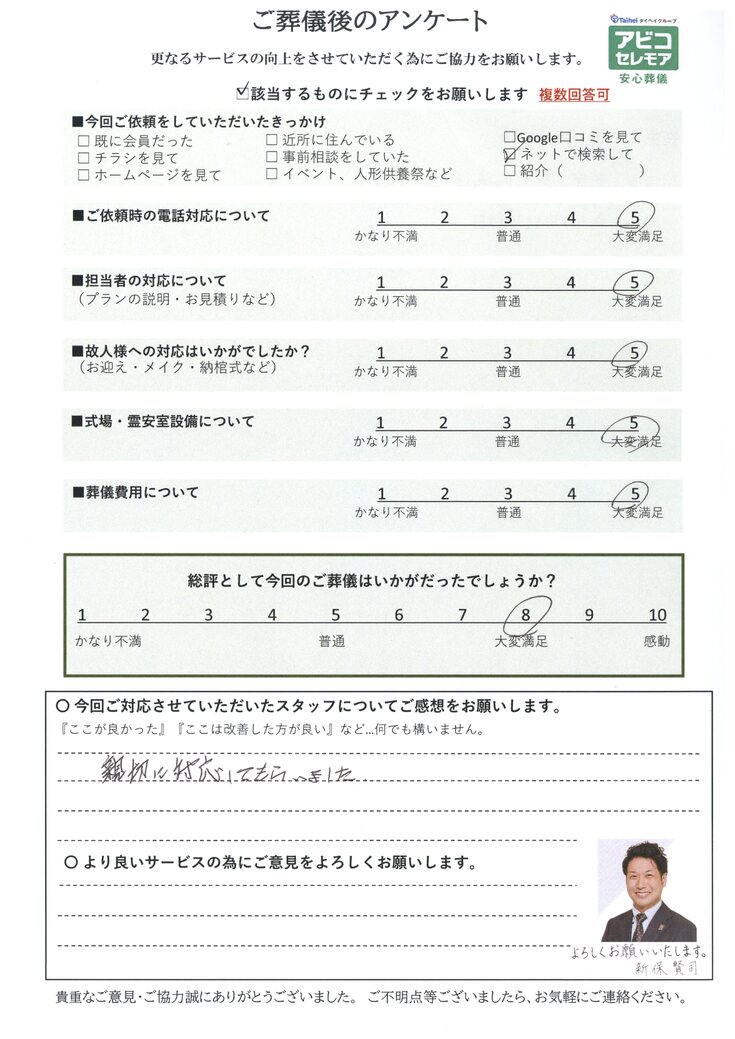 ご葬儀後のアンケート
Taihei タイヘイグループ
アビコ
セレモア
安心葬儀
更なるサービスの向上をさせていただく為にご協力をお願いします。
☑該当するものにチェックをお願いします 複数回答可
■今回ご依頼をしていただいたきっかけ
□ 既に会員だった □ 近所に住んでいる □Google口コミを見て
□ チラシを見て □ 事前相談をしていた ☑ ネットで検索して
□ ホームページを見て □ イベント、人形供養祭など □ 紹介（ ）
■ご依頼時の電話対応について 1 2 3 4 5
かなり不満 普通 大変満足
■担当者の対応について 1 2 3 4 5
（プランの説明・お見積りなど） かなり不満 普通 大変満足
■故人様への対応はいかがでしたか？ 1 2 3 4 5
（お迎え・メイク・納棺式など） かなり不満 普通 大変満足
■式場・霊安室設備について 1 2 3 4 5
かなり不満 普通 大変満足
■葬儀費用について 1 2 3 4 5
かなり不満 普通 大変満足
総評として今回のご葬儀はいかがだったでしょうか？
1 2 3 4 5 6 7 8 9 10
かなり不満 普通 大変満足 感動
〇 今回ご対応させていただいたスタッフについてご感想をお願いします。
『ここが良かった』『ここは改善した方が良い』など...何でも構いません。
親切に対応してもらいました
〇 より良いサービスの為にご意見をよろしくお願いします。
よろしくお願いいたします。
新保賢司
貴重なご意見・ご協力誠にありがとうございました。 ご不明点等ございましたら、お気軽にご連絡ください。